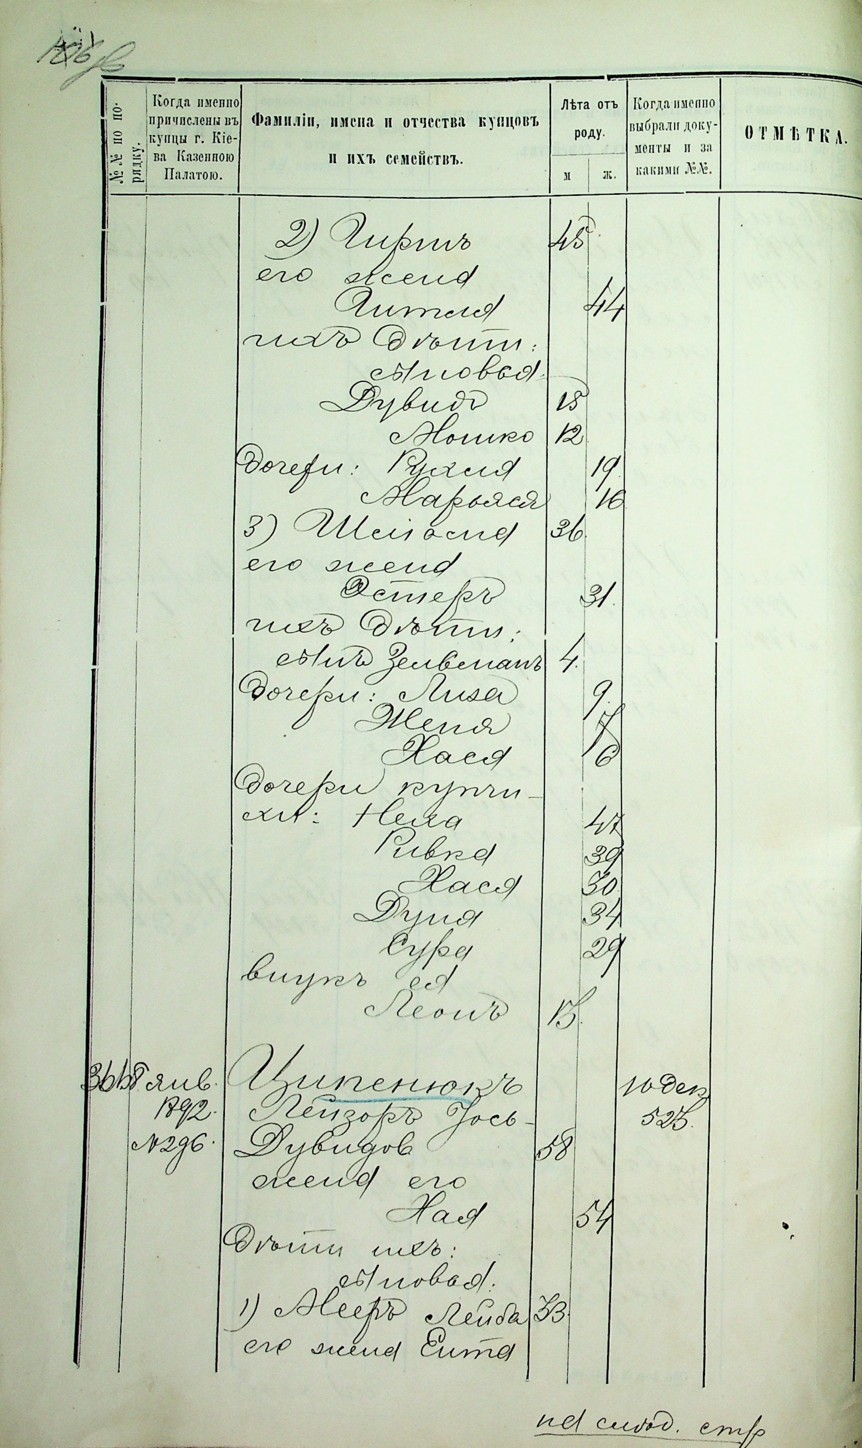 №№ по по-
рядку.
Когда именно
причислены въ
купцы г. Кіе-
ва Казенною
Палатою.
Фамиліи, имена и отчества купцовъ
и ихъ семействъ.
Лѣта отъ
роду.
м
ж.
Когда именно
выбрали доку-
менты и за
какими №№.
ОТМѢТКА.
2) Гиршъ 45
его жена
Гитля 44
ихъ дѣти:
сыновья
Дувидъ 15
Мошко 12
дочери: Рухля 19
Марьяся 16
3) 36
его жена
Эстеръ 31.
ихъ дѣти:
сынъ Зельманъ 4.
дочери: Лиза 9.
Женя 7
Хася 6
дочери купчи-
хи: Неха 47
Ривка 39
Хася 30
Дуня 34
Сура 29
внукъ ея
Леонъ 15.
366 8 янв. Ципенюкъ 10 дек.
1892. Лейзоръ Іось- 525.
№ 296. Дувидов 58
жена его
Хая 54
дѣти ихъ:
сыновья:
1) Мееръ Лейба 33.
его жена Ента
на слѣд. стр